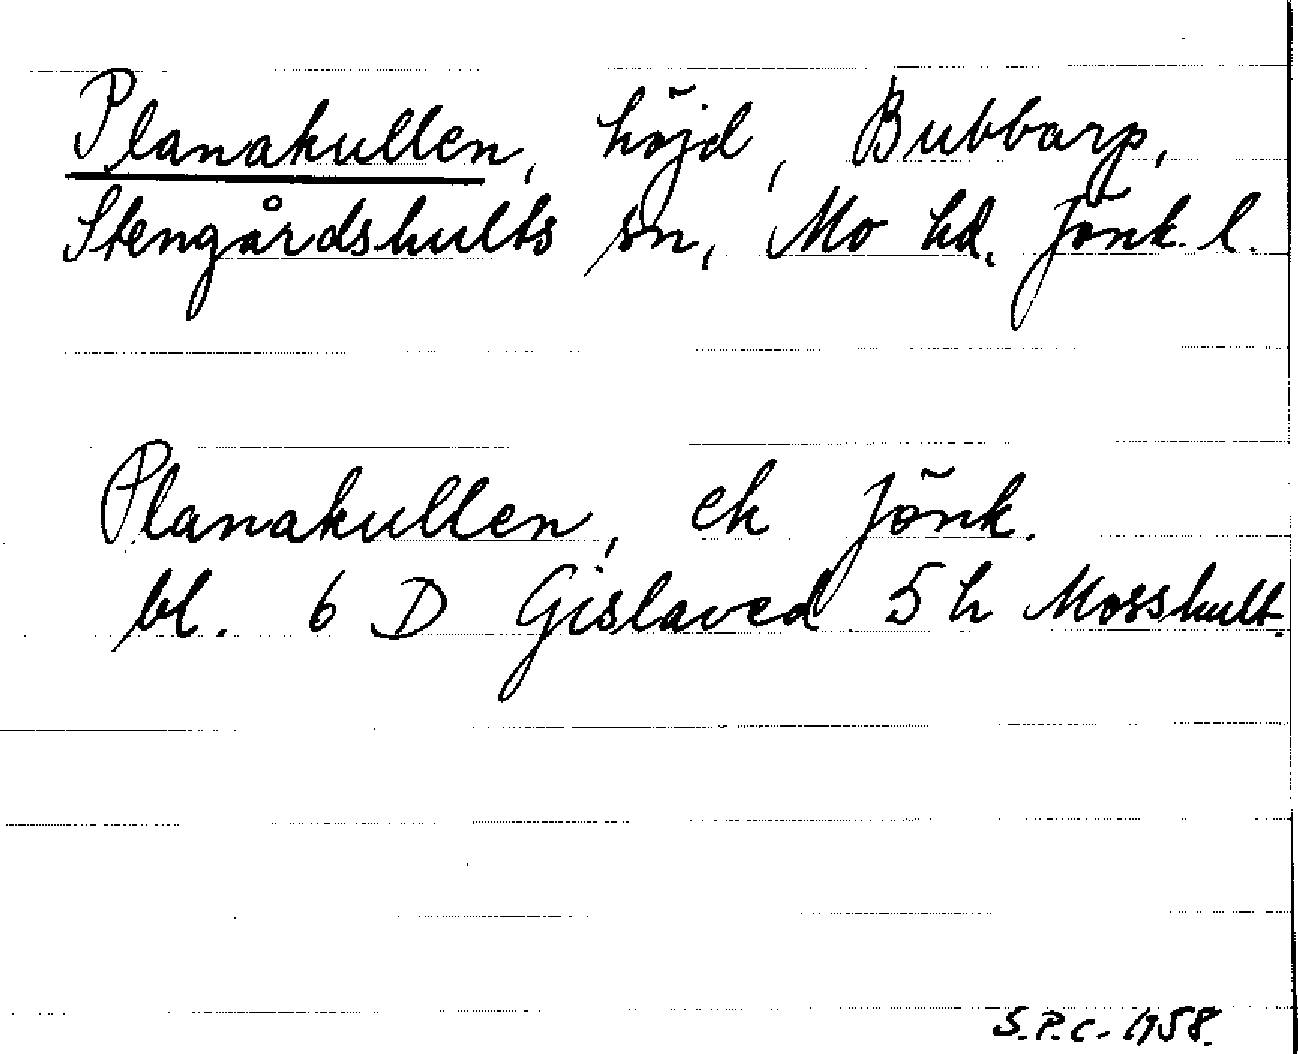 Planakullen, höjd, Bubbarp,
Stengårdshults sn, Mo hd. Jönk. l.
Planakullen, ek Jönk.
bl. 6 D Gislaved 5 h Mosshult.
S.P.C. 1958.